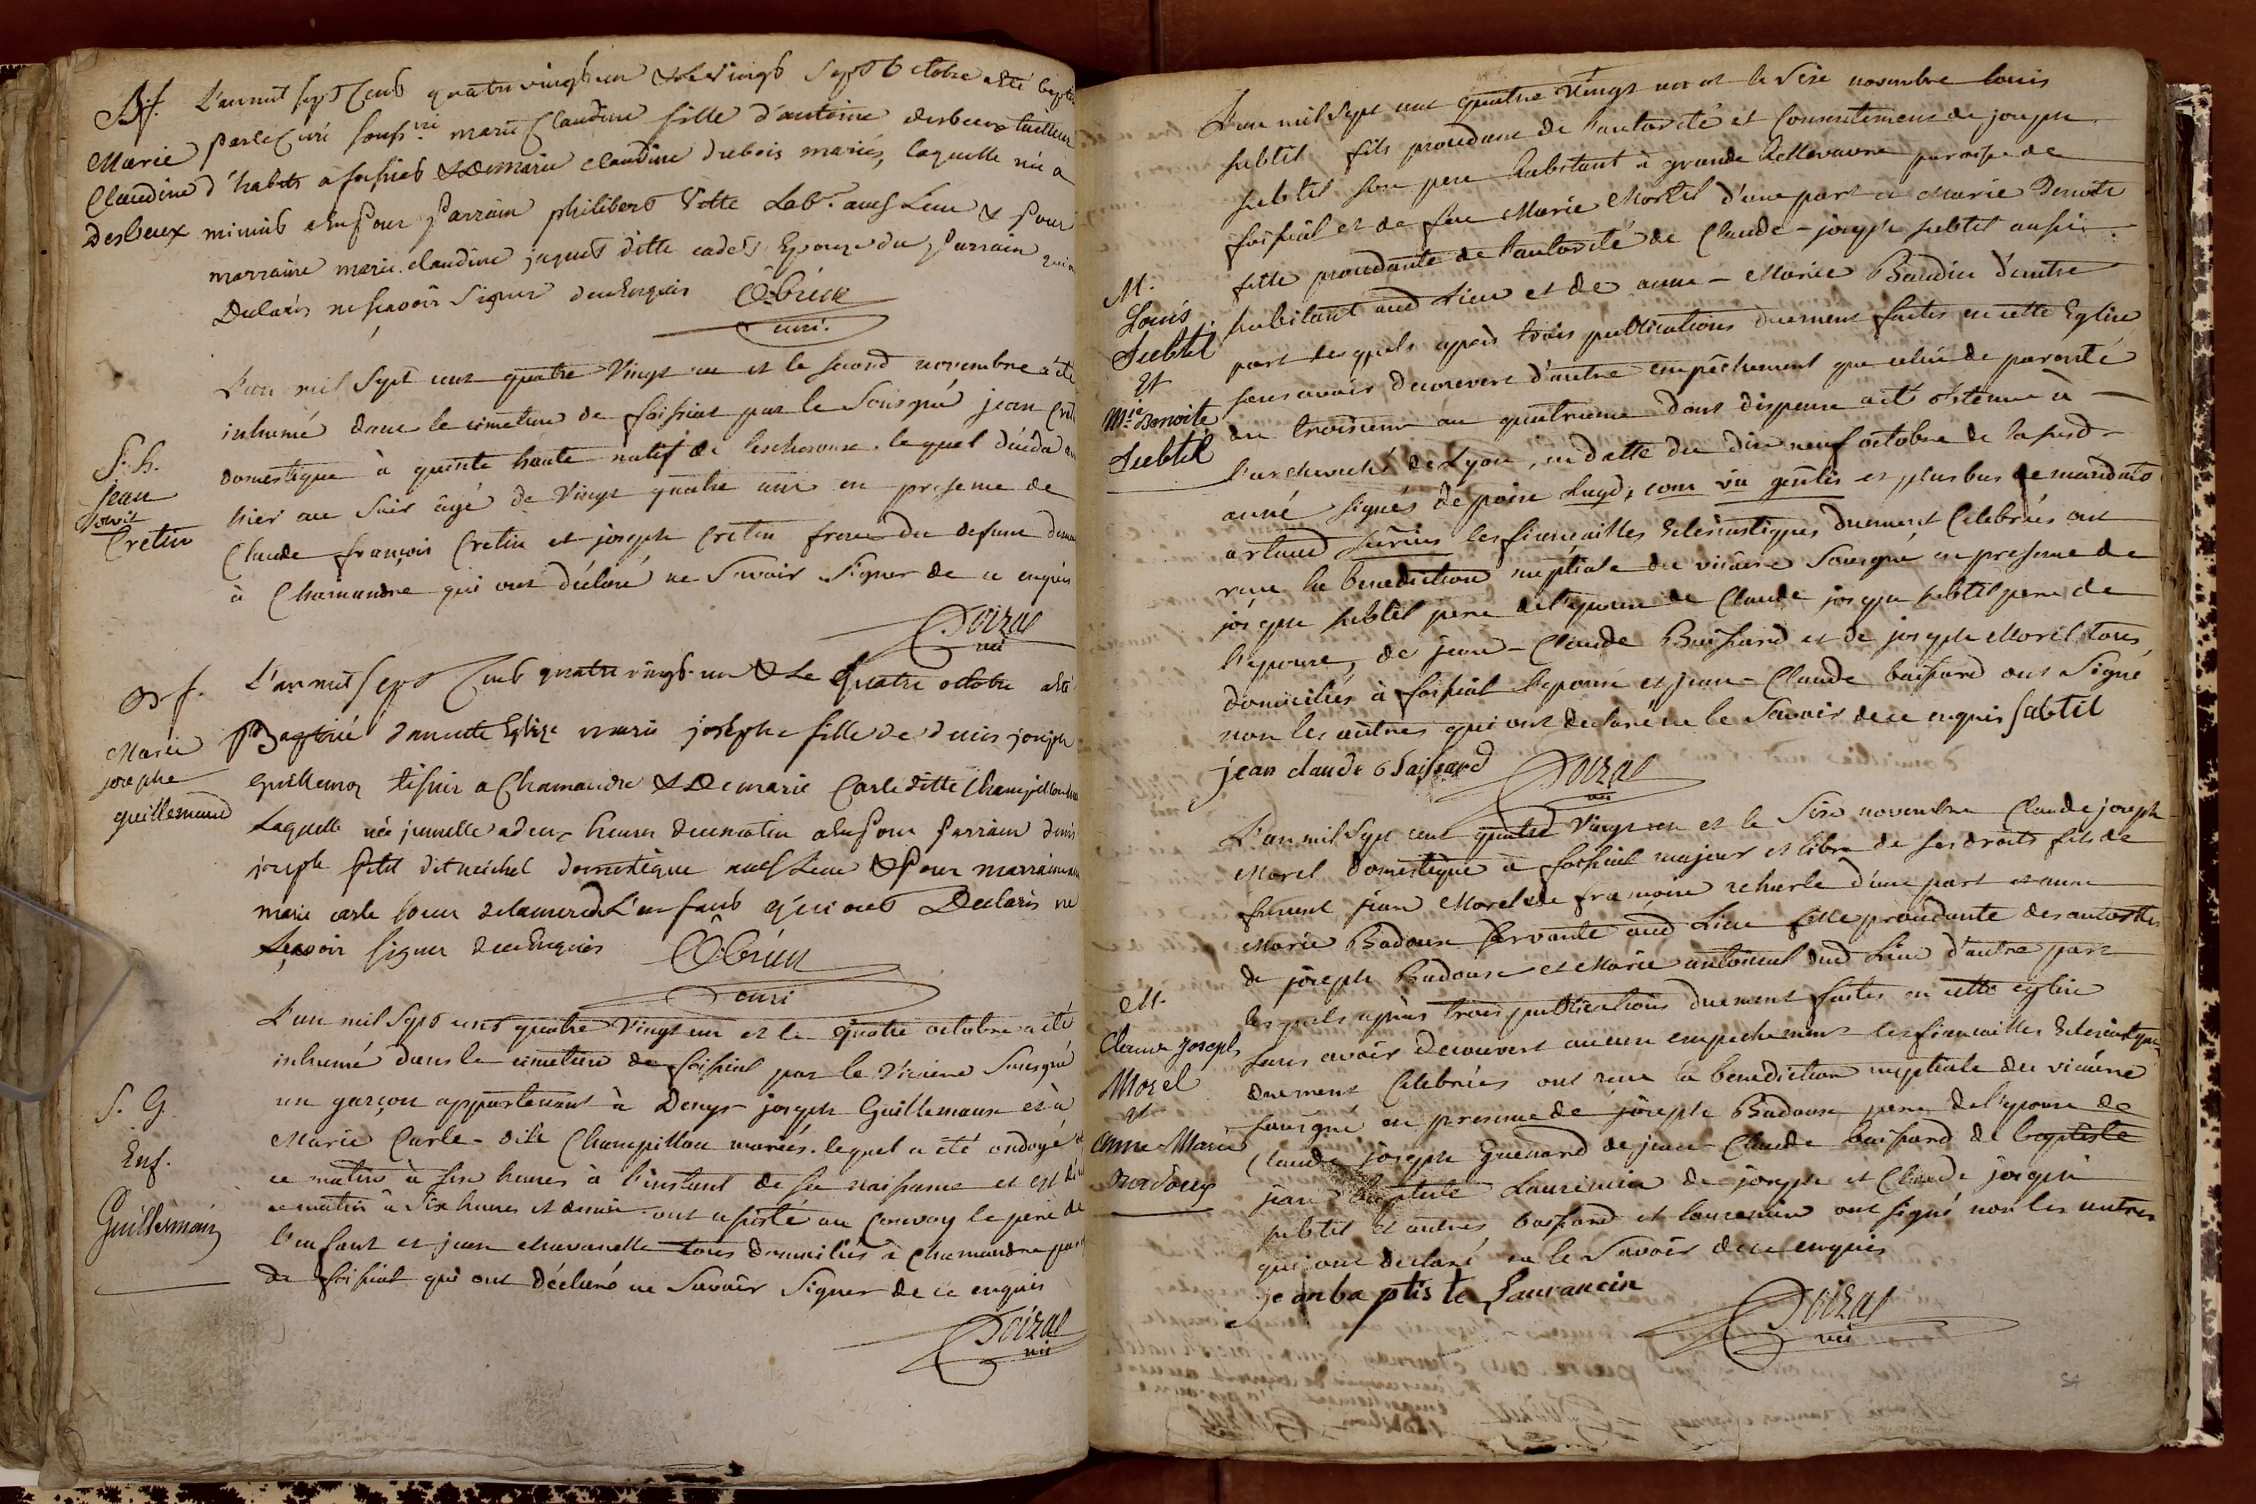 B.f.
Marie
Claudine
Desbeux
L'an mil sept cens quatre vingt un & le vingt sept octobre a été bapt
par le curé souss.né marie Claudine fille d'antoine desbeux tailleur
d'habits a foissiat & de marie claudine dubois mariés, laquelle née à
minuit a eu pour parrain philibert Vitte Lab.r aud Lieu & pour
marraine marie claudine jaquet ditte cadet Epouze du parrain qui
Declarés ne sçavoir signer de ce Enquis
curé
S. h.
jean
Cretin
L'an mil sept cent quatre vingt un et le second novembre a été
inhumé dans le cimetiere de foissiat par le Sousigné jean Cret
domestique à quinte haute natif de lescheroux. lequel décéda
hier au soir âgé de vingt quatre ans en presence de
Claude françois Cretin et joseph Cretin freres du defunt
à Chamandre qui ont déclaré ne savoir signer de ce enquis
Doizat
vic
B f.
Marie
josephe
guillemand
L'an mil sept cens quatre vingt un & Le quatre octobre a été
Baptisé dans cette Eglize marie josephe fille de denis joseph
guillemoz tissier a Chamandre & De marie Carle ditte Champillon
Laquelle née jumelle a deux heures du matin a eu pour parrain denis
joseph petit dit michel domestique aud Lieu & pour marraine
marie carle soeur de la mere de L'enfant qui ont Declarés ne
sçavoir signer de ce Enquis
curé
S. G.
Enf.
Guillemain
L'an mil sept cent quatre vingt un et le quatre octobre a été
inhumé dans le cimetiere de foissiat par le vicaire sousigné
un garçon appartenant à Denys joseph Guillemaux et à
Marie Carle dite Champillon mariés. lequel a été ondoyé
ce matin à six heures à l'instant de sa naissance et est
ce matin à six heures et demie ont assisté au convoy le pere de
l'enfant et jean Chavanelle tous domiciliés à Chamandre
de foissiat qui ont déclaré ne savoir signer de ce enquis
Doizat
vic
M.
Louis
Subtil
Et
M.ie Benoite
Subtil
L'an mil sept cent quatre vingt un et le seize novembre louis
subtil fils procedant de l'autorité et consentement de joseph
subtil son pere habitant à grande Villevauvre paroisse de
foissiat et de feue Marie Morel d'une part et Marie Benoite
fille procedante de l'autorité de Claude-joseph subtil aussi
habitant aud lieu et de anne-Marie Baudin d'autre
part lesquels après trois publications duement faites en cette Eglise
sans avoir decouvert d'autre empêchement que celui de parenté
du troisieme au quatrieme dont dispense a été obtenue à
l'archeveché de Lyon, en datte du dix neuf octobre de la susd
anné signés depoin Lugd, com vic genlis et plus bas de mandato
artaud les fiançailles Eclesiastiques duement Celebrées ont
reçu la benediction nuptiale du vicaire sousigné en presence de
joseph subtil pere de l'epoux de Claude joseph subtil pere de
l'epouse, de jean-Claude Baissard et de joseph Morel tous
domiciliés à foissiat l'epoux et jean-Claude baissard ont Signé
non les autres qui ont declaré ne le savoir de ce enquis subtil
jean claude Baissard
Doizat
vic
M.
Claude joseph
Morel
et
anne-Marie
Badoux
L'an mil sept cent quatre vingt un et le seize novembre Claude joseph
Morel domestique à foissiat majeur et libre de ses droits fils de
jean Morel et de françoise d'une part et anne
Marie Badoux servante aud Lieu fille procedante des autorités
de joseph Badoux et Marie dud lieu d'autre part
lesquels après trois publications duement faites en cette eglise
sans avoir decouvert aucun empechement les fiançailles Eclesiastiques
duement Celebrées ont reçu la benediction nuptiale du vicaire
sousigné en presence de joseph Badoux pere de l'epouse de
Claude joseph Guenard de jean-Claude baissard de baptiste
jean baptiste Laurencin de joseph et Claude joseph
subtil et autres baissard et laurencin ont signé non les autres
qui ont declaré ne le savoir de ce enquis
jeanbaptiste Laurancin
Doizat
vic